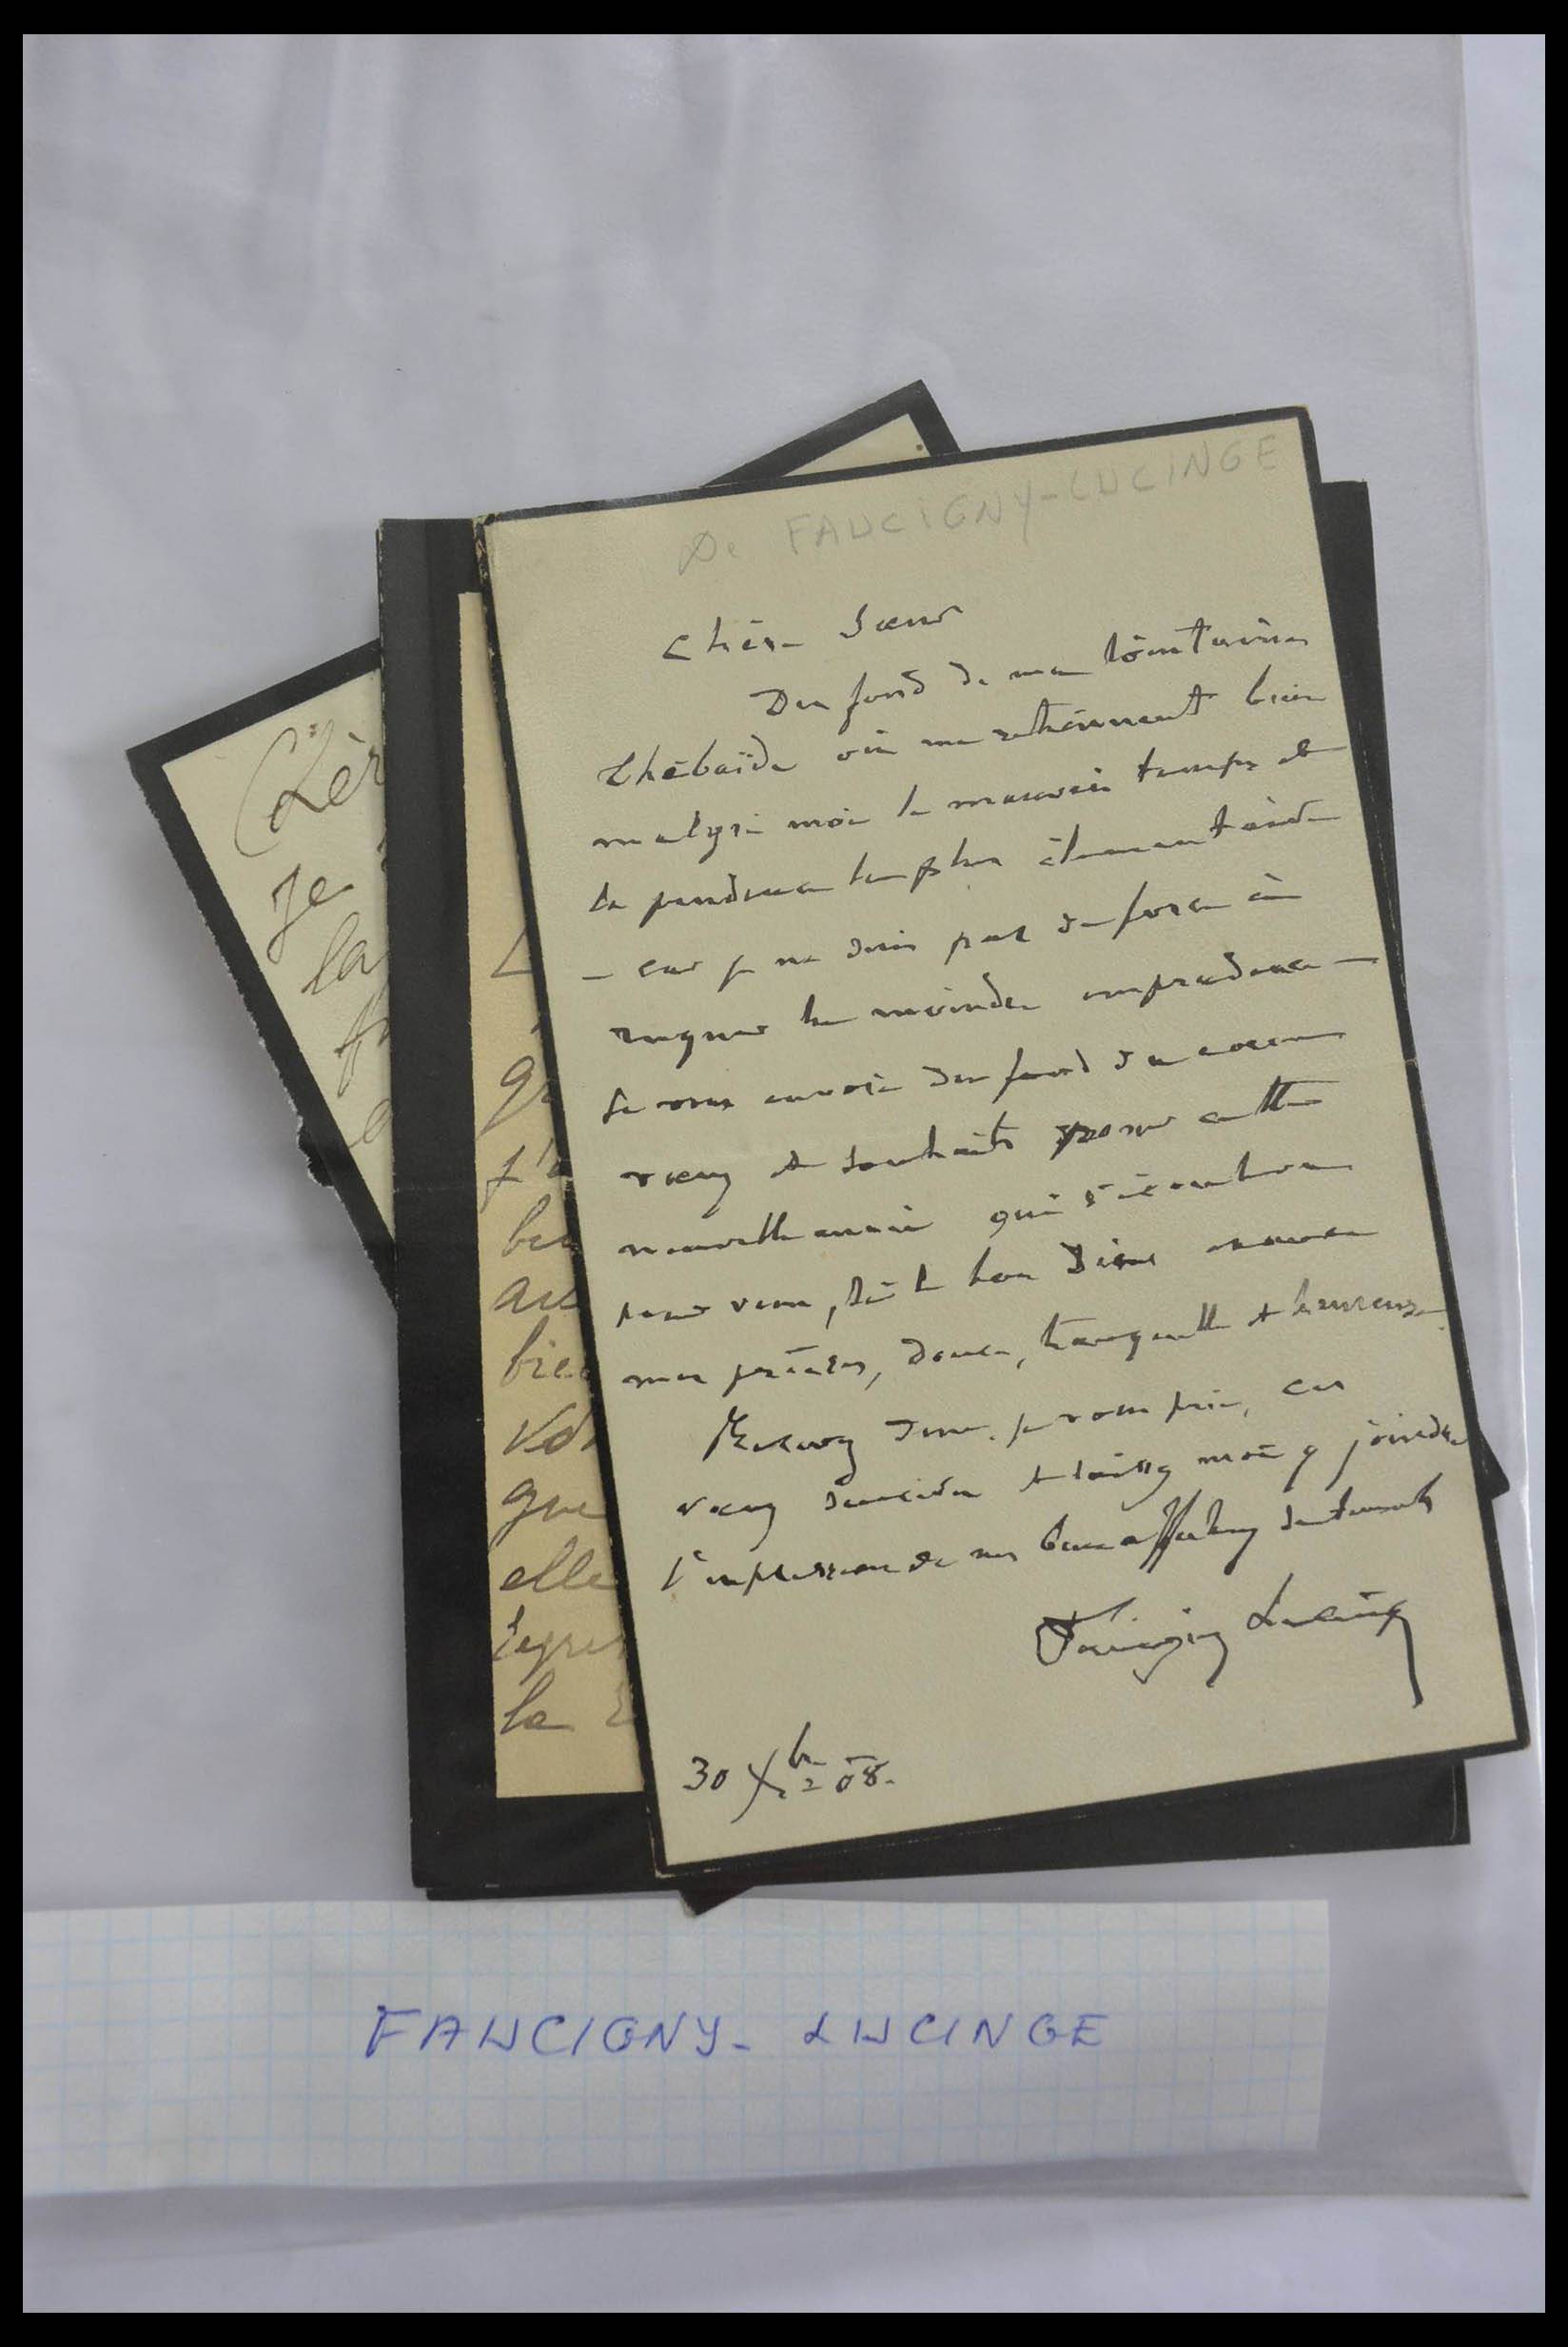 De FAUCIGNY-LUCINGE
Chère Sœur
Du fond de ma lointaine
Thébaïde où me retiennent bien
malgré moi le mauvais temps et
la prudence la plus élémentaire
— car je ne suis pas de force à
risquer la moindre imprudence —
Je vous envoie du fond du cœur
vœux et souhaits pour cette
nouvelle année qui s'écoulera
pour vous, si le bon Dieu exauce
mes prières, douce, tranquille et heureuse.
Recevez donc, je vous prie, ces
vœux sincères et laissez moi y joindre
l'expression de mes bien affectueux sentiments
Faucigny Lucinge
30 Xbre 08.
Chèr
Je
la
qu
j'a
bien
vo
que
elle
regre
la
FAUCIGNY- LUCINGE